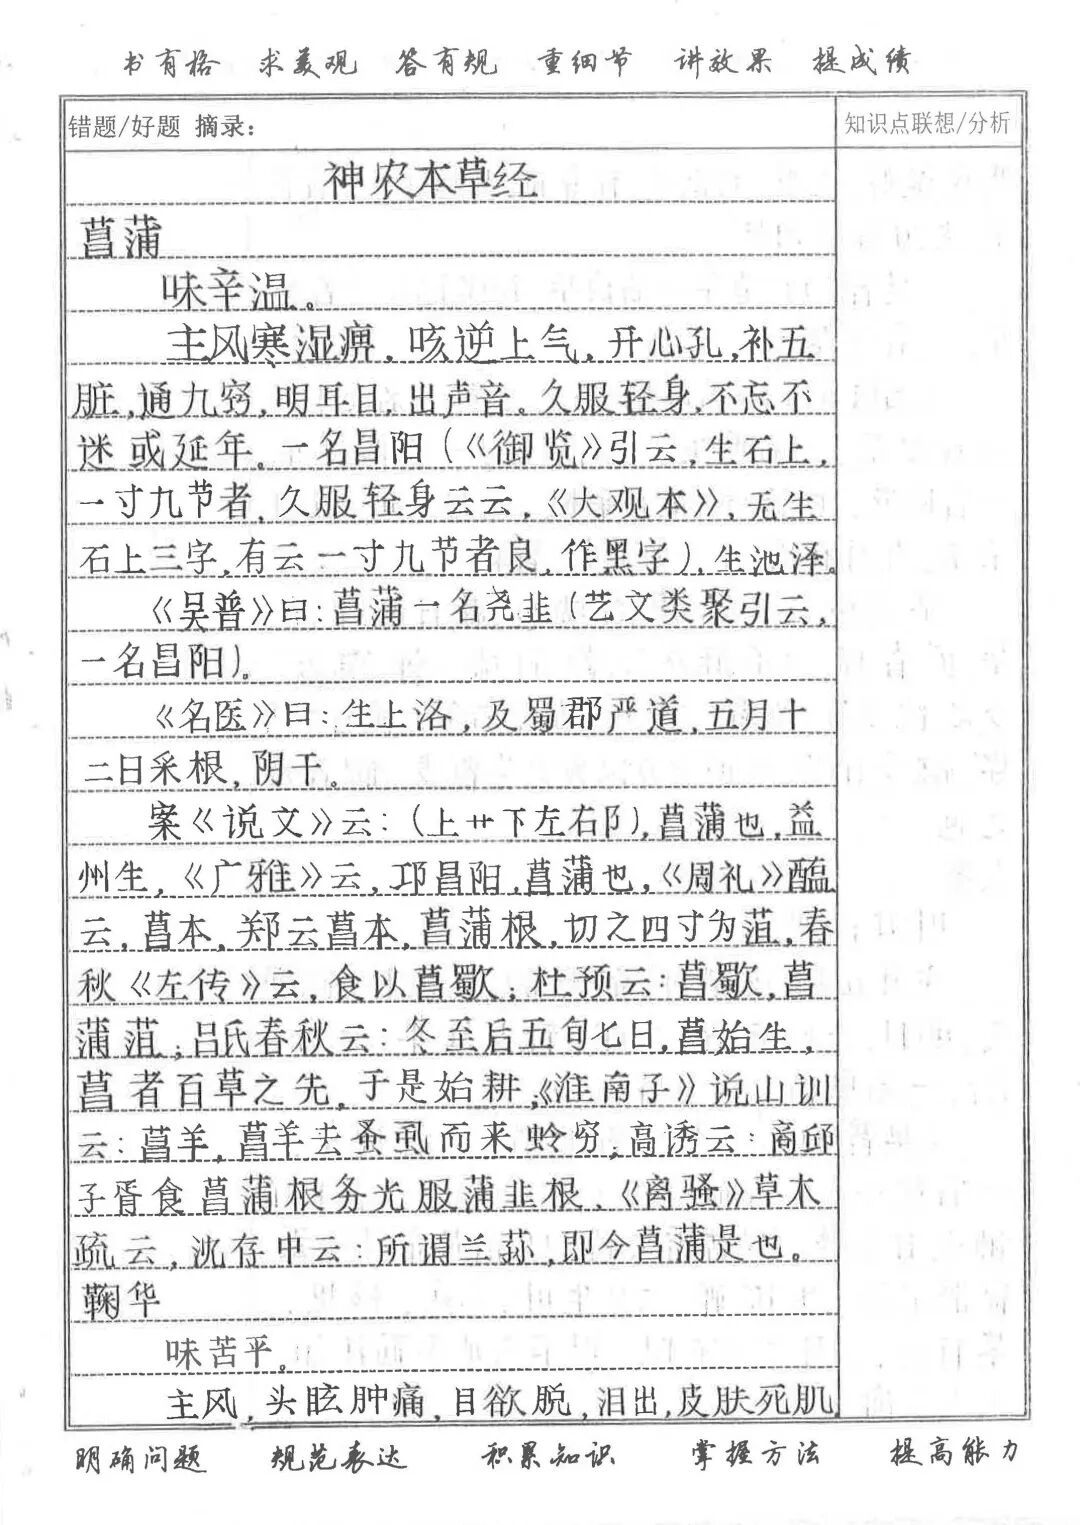 书有格 求美观 答有规 重细节 讲效果 提成绩
错题/好题 摘录：
知识点联想/分析
神农本草经
菖蒲
味辛温。
主风寒湿痹，咳逆上气，开心孔，补五
脏，通九窍，明耳目，出声音。久服轻身，不忘不
迷或延年。一名昌阳（《御览》引云，生石上，
一寸九节者，久服轻身云云，《大观本》，无生
石上三字，有云一寸九节者良，作黑字），生池泽。
《吴普》曰：菖蒲一名尧韭（艺文类聚引云，
一名昌阳）。
《名医》曰：生上洛，及蜀郡严道，五月十
二日采根，阴干。
案《说文》云：（上艹下左右阝），菖蒲也，益
州生，《广雅》云，邛昌阳，菖蒲也，《周礼》醢
云，菖本，郑云菖本，菖蒲根，切之四寸为菹，春
秋《左传》云，食以菖歜；杜预云：菖歜，菖
蒲菹；吕氏春秋云：冬至后五旬七日，菖始生，
菖者百草之先，于是始耕，《淮南子》说山训
云：菖羊，菖羊去蚤虱而来蛉穷，高诱云：商邱
子胥食菖蒲根务光服蒲韭根、《离骚》草木
疏云，沈存中云：所谓兰荪，即今菖蒲是也。
鞠华
味苦平。
主风，头眩肿痛，目欲脱，泪出，皮肤死肌，
明确问题 规范表达 积累知识 掌握方法 提高能力